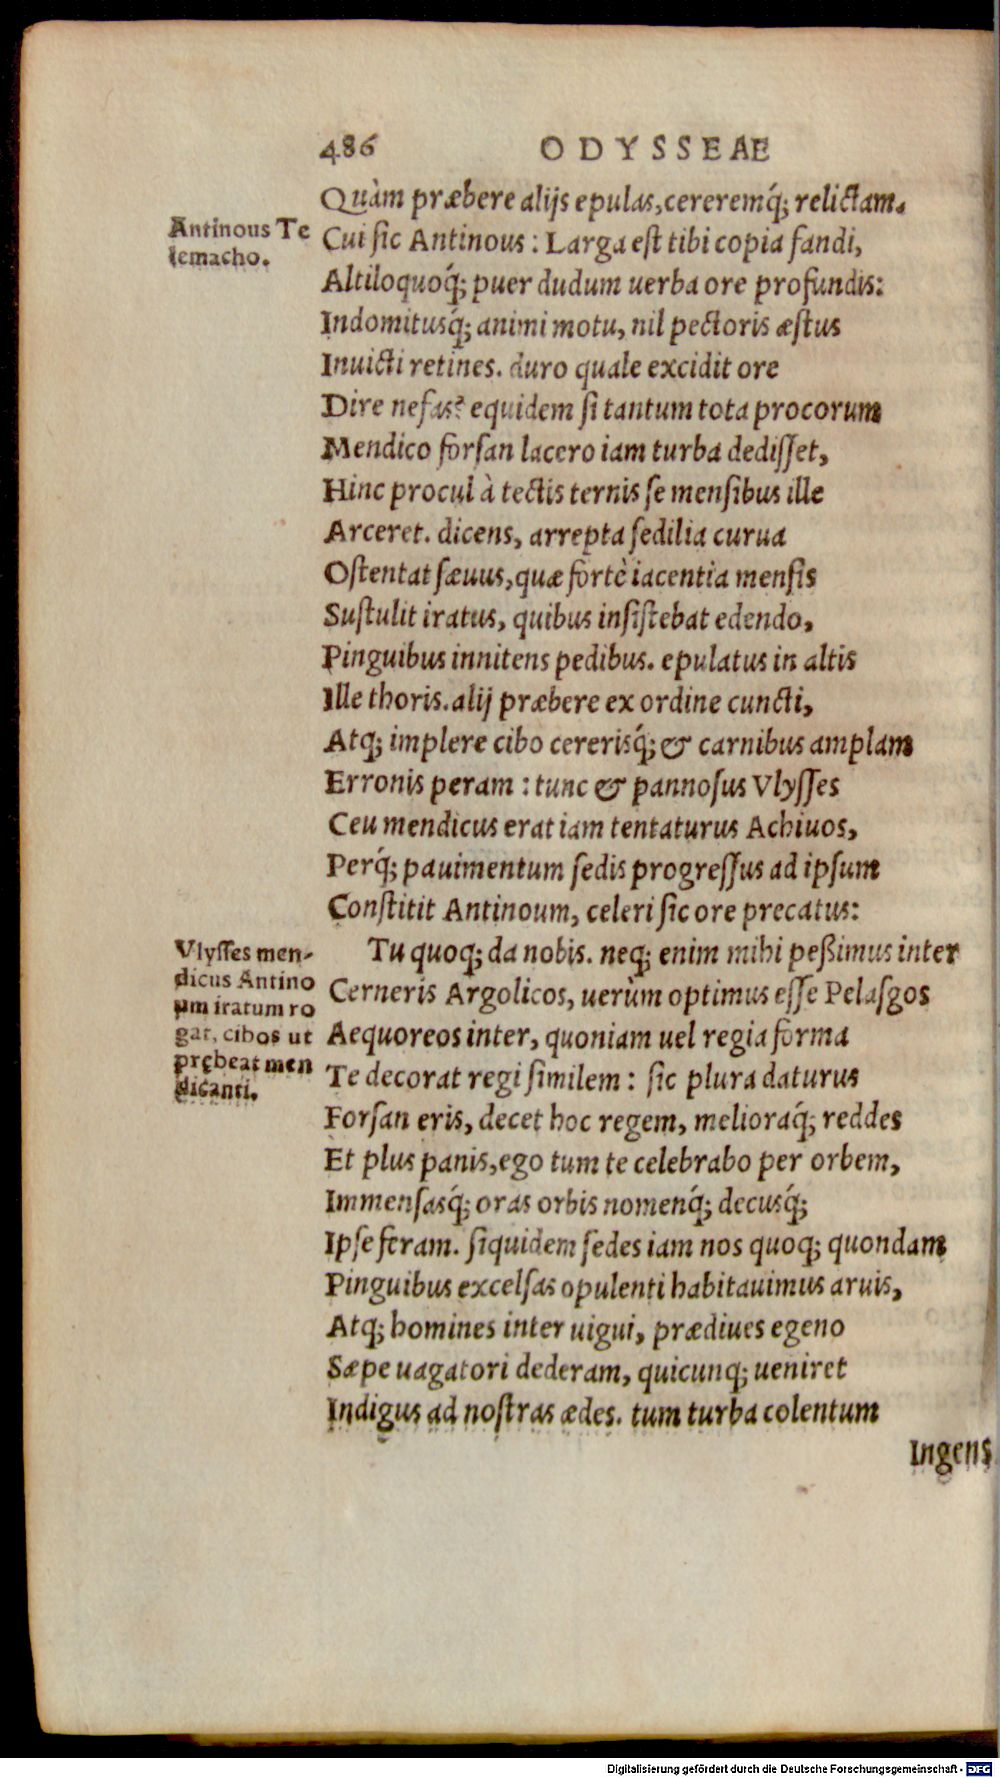 486 ODYSSEAE
Quàm præbere alijs epulas, cereremq́; relictam.
Antinous Te
lemacho.
Cui sic Antinous: Larga est tibi copia fandi,
Altiloquoq́; puer dudum uerba ore profundis:
Indomitusq́; animi motu, nil pectoris æstus
Inuicti retines. duro quale excidit ore
Dire nefas? equidem si tantum tota procorum
Mendico forsan lacero iam turba dedisset,
Hinc procul à tectis ternis se mensibus ille
Arceret. dicens, arrepta sedilia curua
Ostentat sæuus, quæ fortè iacentia mensis
Sustulit iratus, quibus insistebat edendo,
Pinguibus innitens pedibus. epulatus in altis
Ille thoris. alij præbere ex ordine cuncti,
Atq; implere cibo cererisq́; & carnibus amplam
Erronis peram: tunc & pannosus Vlysses
Ceu mendicus erat iam tentaturus Achiuos,
Perq́; pauimentum sedis progressus ad ipsum
Constitit Antinoum, celeri sic ore precatus:
Vlysses men-
dicus Antino
um iratum ro
gat, cibos ut
prębeat men
dicanti.
Tu quoq; da nobis. neq; enim mihi peßimus inter
Cerneris Argolicos, uerùm optimus esse Pelasgos
Aequoreos inter, quoniam uel regia forma
Te decorat regi similem: sic plura daturus
Forsan eris, decet hoc regem, melioraq́; reddes
Et plus panis, ego tum te celebrabo per orbem,
Immensasq́; oras orbis nomenq́; decusq́;
Ipse feram. siquidem sedes iam nos quoq; quondam
Pinguibus excelsas opulenti habitauimus aruis,
Atq; homines inter uigui, prædiues egeno
Sæpe uagatori dederam, quicunq; ueniret
Indigus ad nostras ædes. tum turba colentum
Ingens
Digitalisierung gefördert durch die Deutsche Forschungsgemeinschaft - DFG